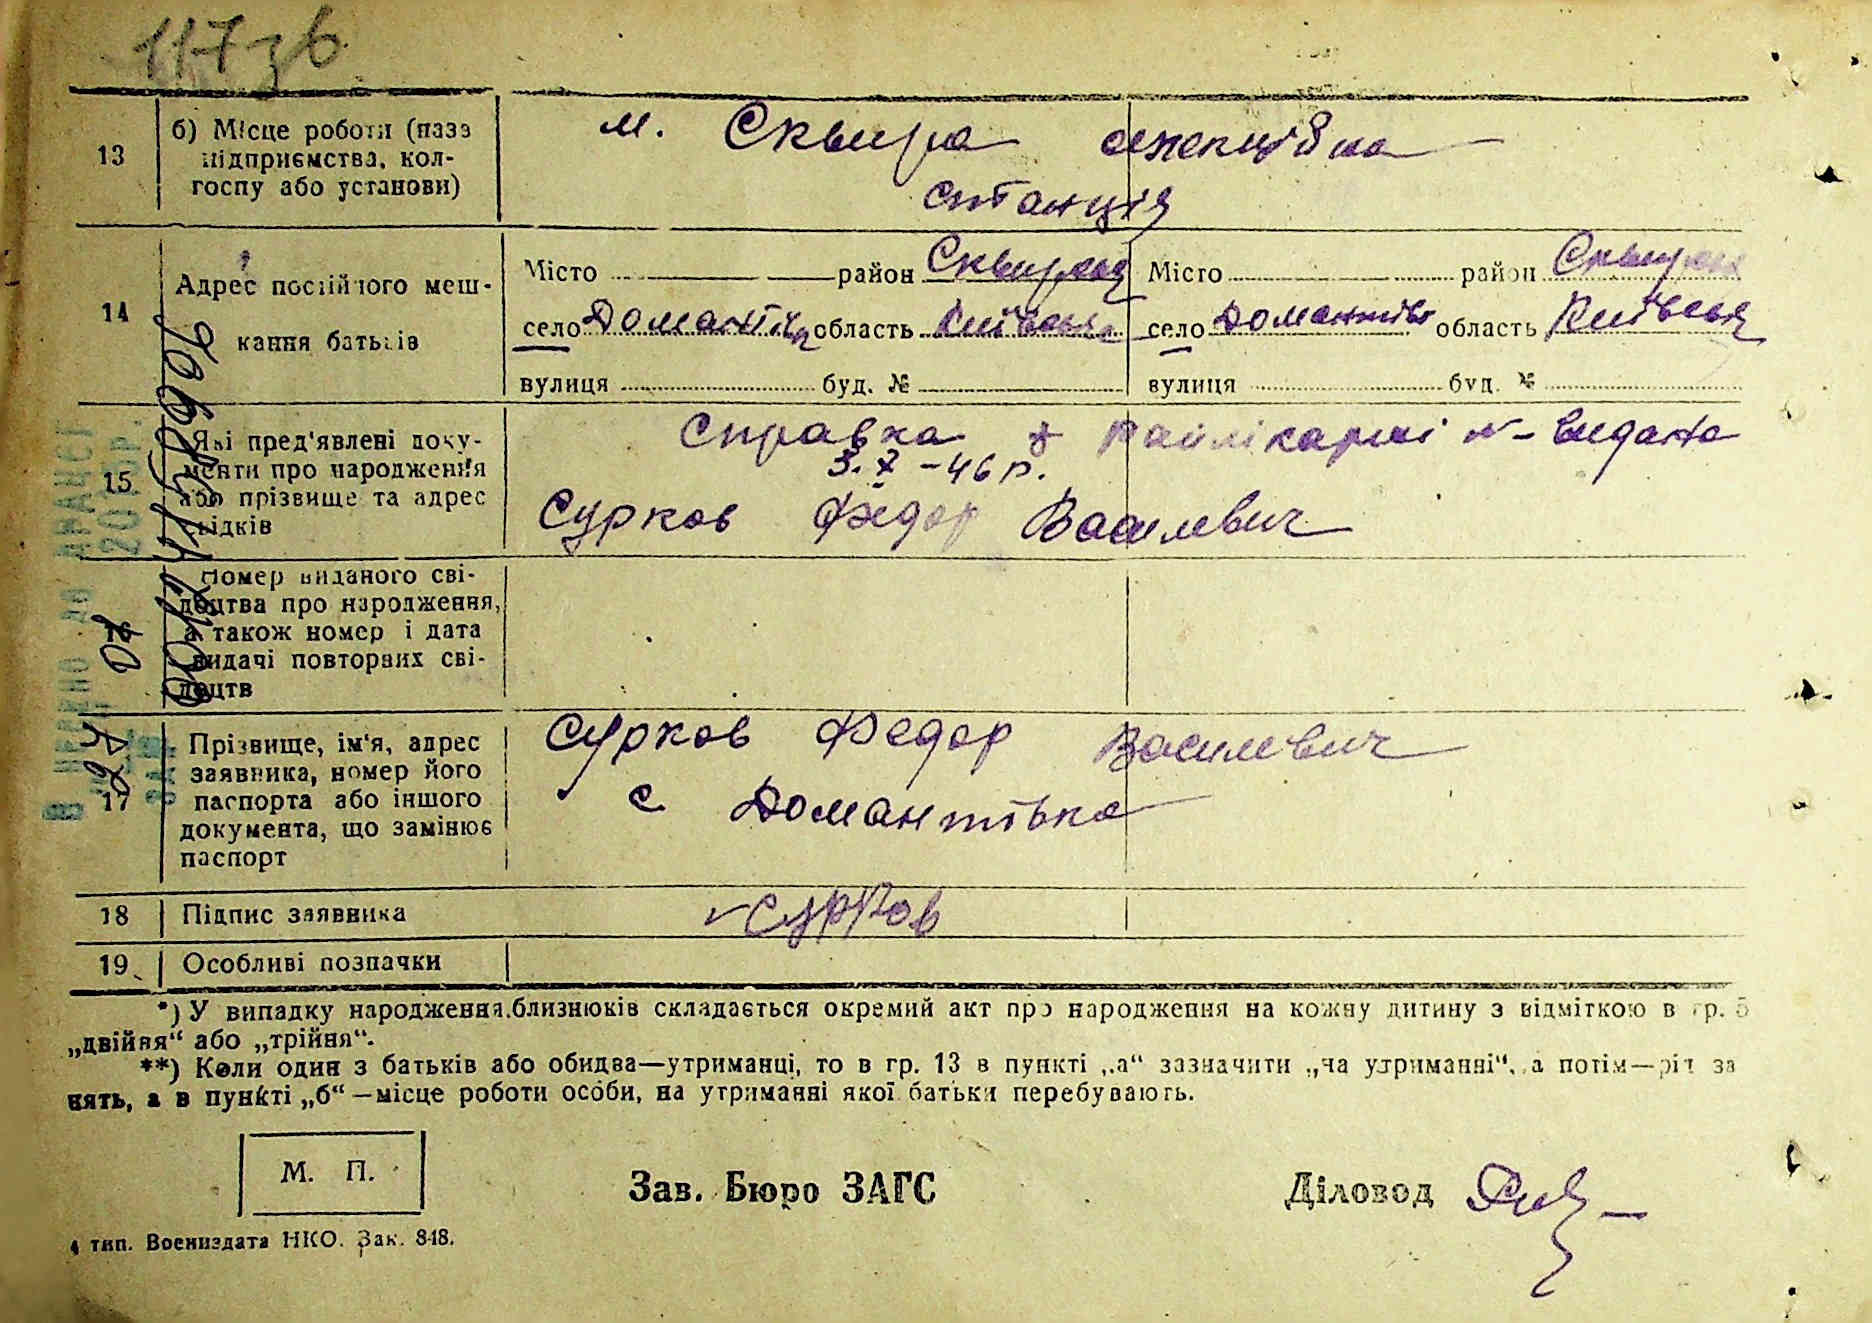 117 зв.
13
б) Місце роботи (назв
підприємства, кол-
госпу або установи)
м. Сквира селекційна
станція
14
Адрес постійного меш-
кання батьків
Місто район Сквирський
село Домантівка область Київська
вулиця буд. №
Місто район Сквирський
село Домантівка область Київська
вулиця буд. №
15
Які пред'явлені доку-
менти про народження
або прізвище та адрес
свідків
Справка райлікарні видана
3.X-46 р.
Сурков Федор Василевич
16
Номер виданого сві-
доцтва про народження,
а також номер і дата
видачі повторних сві-
доцтв
17
Прізвище, ім'я, адрес
заявника, номер його
паспорта або іншого
документа, що замінює
паспорт
Сурков Федор Василевич
с Домантівка
18
Підпис заявника
Сурков
19
Особливі позначки
*) У випадку народження близнюків складається окремий акт про народження на кожну дитину з відміткою в гр. 5
„двійня“ або „трійня“.
**) Коли один з батьків або обидва—утриманці, то в гр. 13 в пункті „а“ зазначити „на утриманні“, а потім—рід за
нять, а в пункті „б“—місце роботи особи, на утриманні якої батьки перебувають.
М. П.
Зав. Бюро ЗАГС
Діловод
4 тип. Воениздата НКО. Зак. 848.